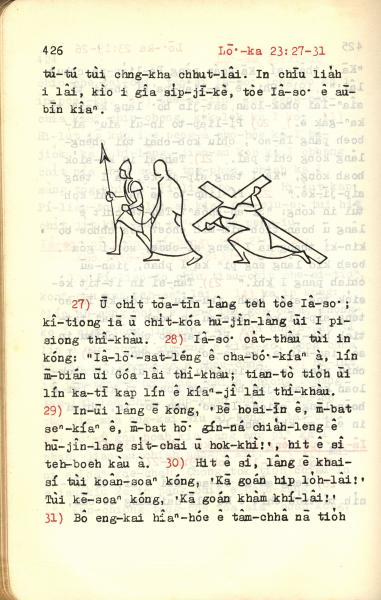 426 Lō͘-ka 23:27-31
tú-tú tùi chng-kha chhut-lâi. In chīu lia̍h
i lâi, kìo i gîa si̍p-jī-kè, tòe Iâ-so͘ ê au-
bīn kîaⁿ.
27) Ū chi̍t tōa-tīn lâng teh tòe Iâ-so͘;
kî-tiong iā ū chi̍t-kóa hū-jîn-lâng ūi I pi-
siong thî-khàu. 28) Iâ-so͘ oa̍t-thâu tùi in
kóng: "Iâ-lō͘-sat-léng ê cha-bó͘-kíaⁿ à, lín
m̄-bián ūi Góa lâi thî-khàu; tian-tò tio̍h ūi
lín ka-tī kap lín ê kíaⁿ-jî lâi thî-khàu.
29) In-ūi lâng ē kóng, 'Bē hoâi-īn ê, m̄-bat
seⁿ-kíaⁿ ê, m̄-bat hō͘ gín-ná chia̍h-leng ê
hū-jîn-lâng si̍t-chāi ū hok-khì!', hit ê sî
teh-boeh kàu à. 30) Hit ê sî, lâng ē khai-
sí tùi koân-soaⁿ kóng, 'Kā goán hip lo̍h-lâi!'
Tùi kē-soaⁿ kóng, 'Kā goán khàm khí-lâi!'
31) Bô eng-kai hîaⁿ-hóe ê tâm-chhâ nā tio̍h